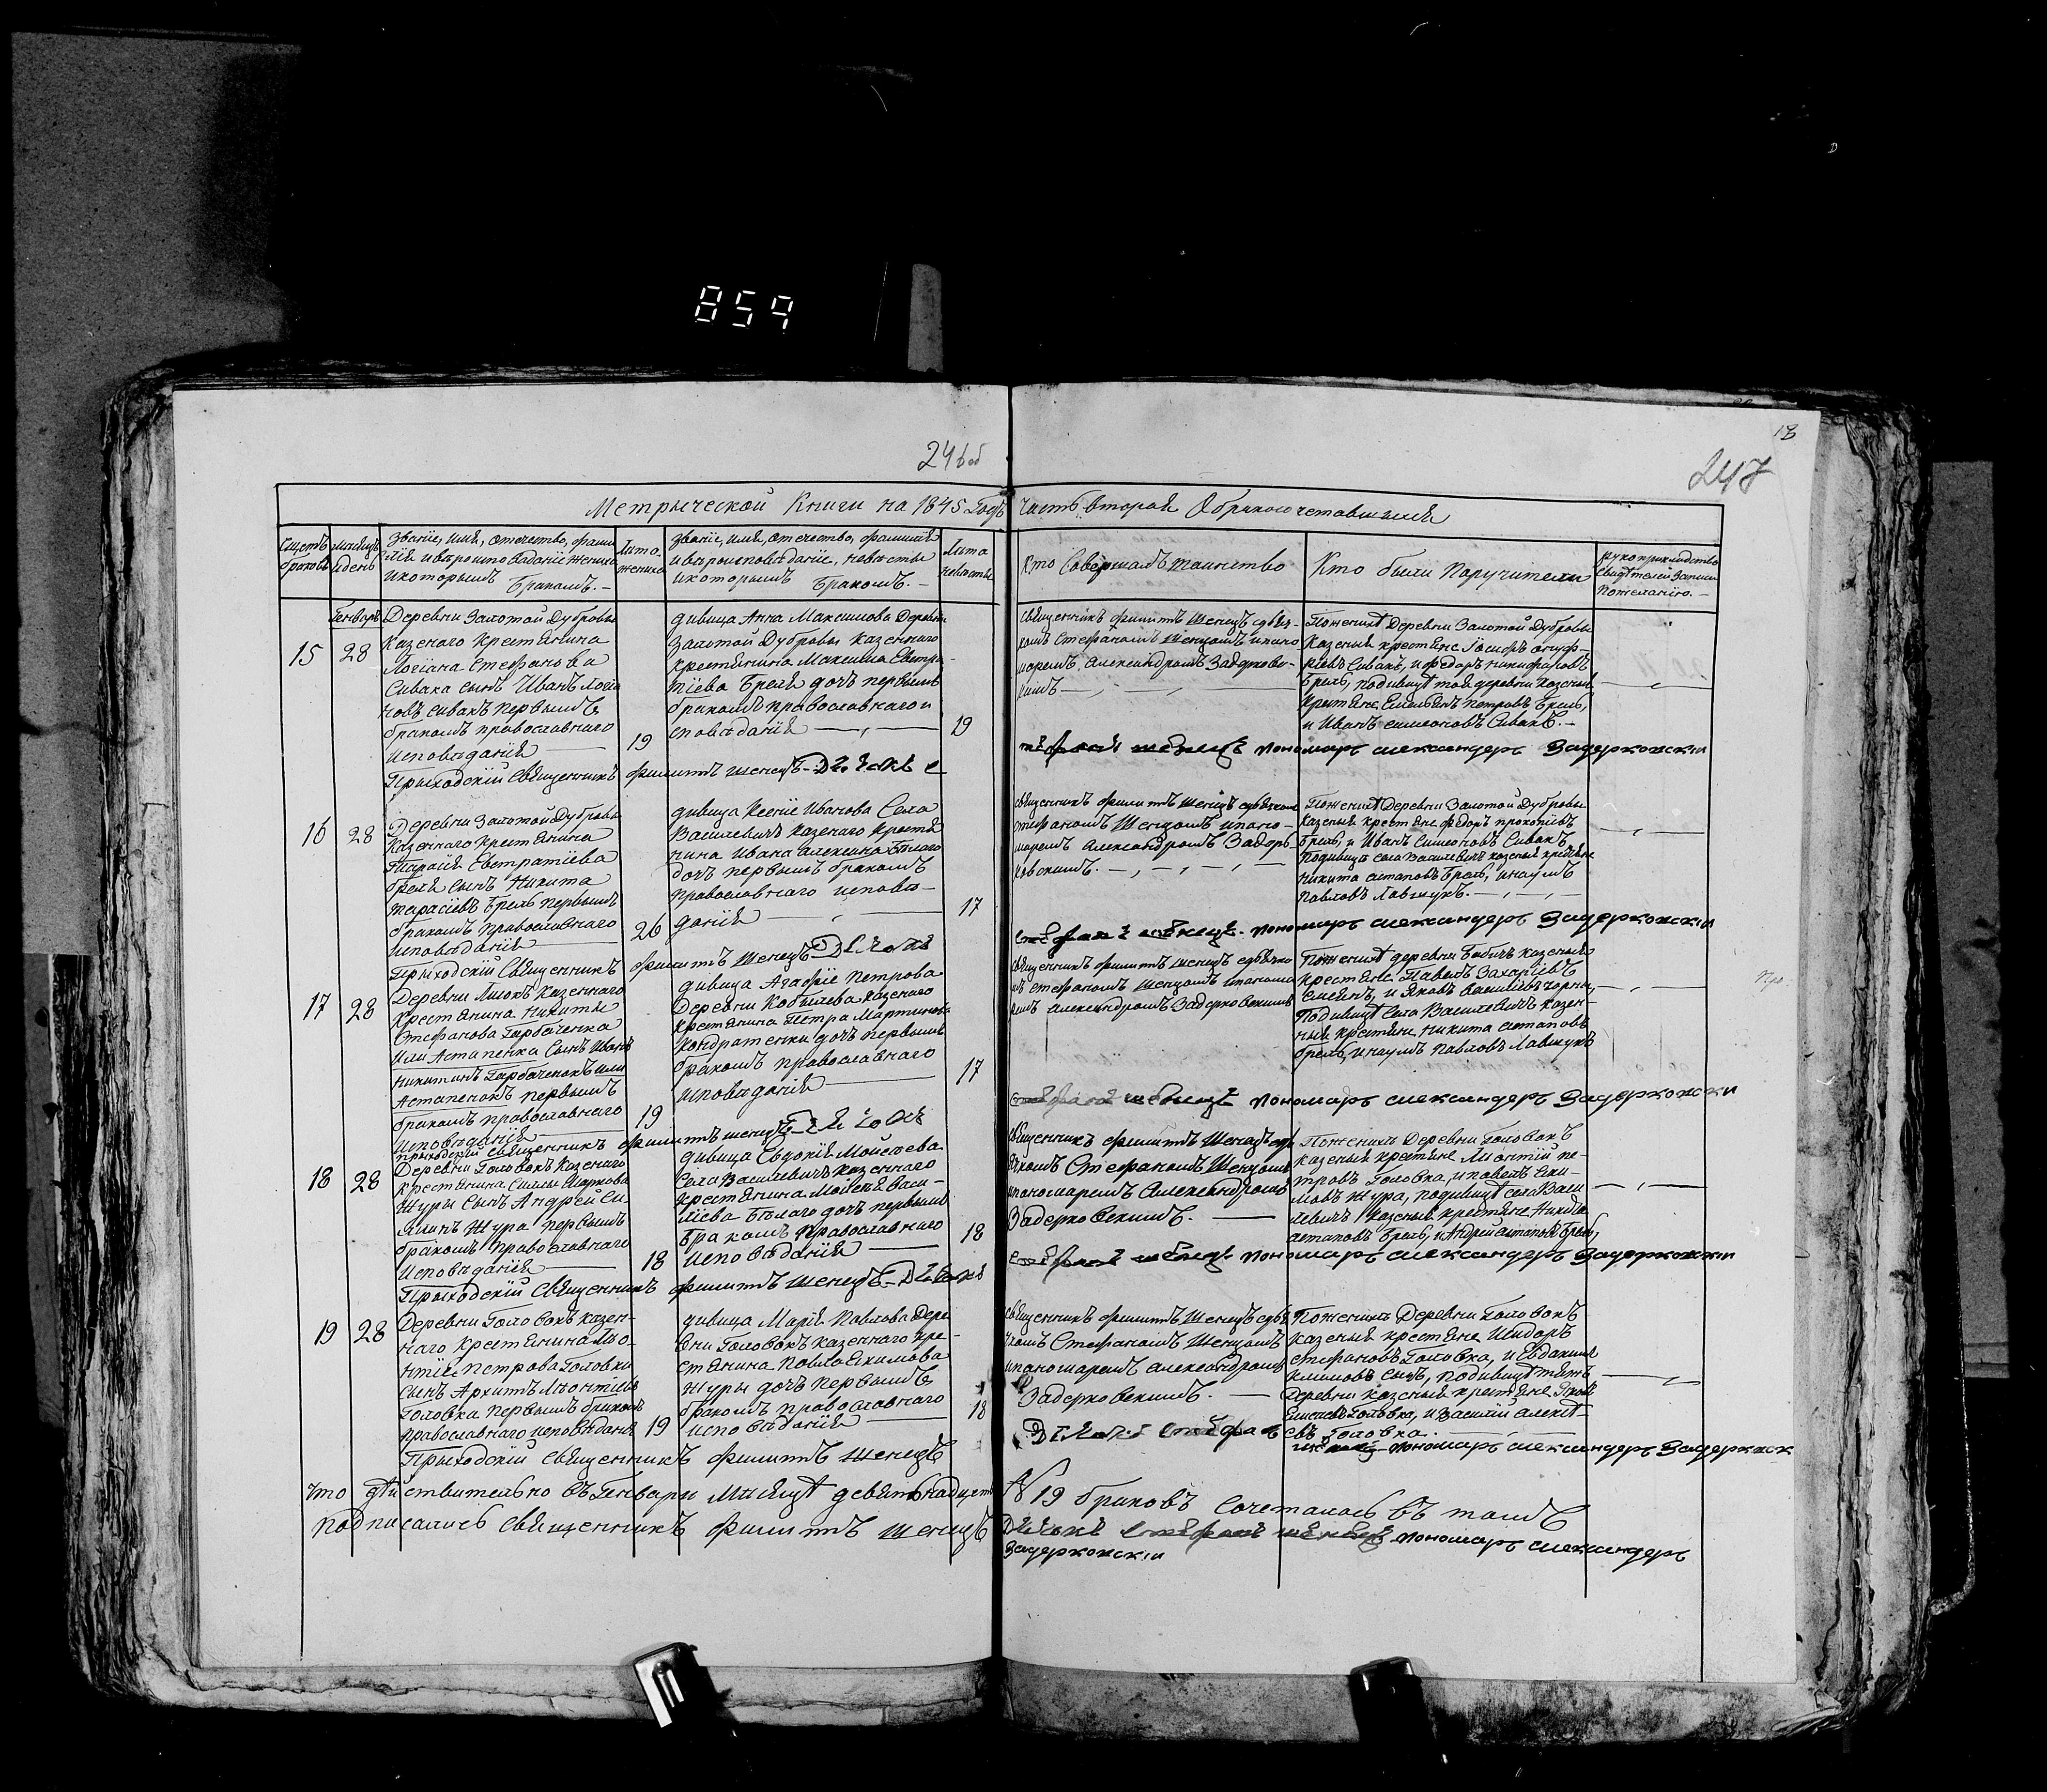 859
246 об
18
247
Метрыческой Книги на 1845 Годъ Часть вторая О бракосочетавшихся
Счетъ браковъ
Мѣсяцъ и день
Званіе, имя, отечество, фами
лія и вѣроисповѣданіе жениха
и которымъ Бракомъ. –
Лѣта жениха
Званіе, имя, отечество, фамилія
и вѣроисповѣданіе, невѣсты
и которымъ Бракомъ. –
Лѣта невѣсты
Кто Совершалъ таинство
Кто были Поручители
рукоприкладство
Свидѣтелей Записи
Пожеланію. –
Генварь
15
28
Деревни Залотой Дубровы
Казенаго Крестянина
Логіана Стефанова
Сивака сынъ Иванъ Логіа
новъ сивакъ первымъ
бракомъ православнаго
исповѣданія
19
дивица Анна Максимова Деревни
Залотой Дубровы казеннаго
крестянина Максима Евстра
тіева Бреля дочъ первымъ
бракомъ православнаго и
сповѣданія
19
священникъ филиптъ Шенецъ здья
комъ Стефаномъ Шенцомъ ипано
маремъ Александромъ Задерков
скимъ
Поженихѣ Деревни Залотой Дубровы
Казеныя крестяне Іосифъ ануф
ріевъ Сивакъ, и федоръ никифоровъ
Брель, подивицѣ тоя деревни казеныя
Крестяне Емельянъ петровъ Брель,
и Иванъ симеоновъ Сивакъ. –
Прыходскій Священникъ филиптъ шенецъ Дячокъ с
тефанъ шенецъ пономаръ александеръ Задерковскіи
16
28
Деревни Залотой Дубровы
Казеннаго Крестянина
Тарасія Евстратіева
бреля сынъ Никита
тарасіевъ Брель первымъ
бракомъ православнаго
исповѣданія
26
дивица Ксенія Иванова Села
Василевичъ казенаго крестя
нина Ивана алексина Бѣлаго
дочъ первымъ бракомъ
православнаго исповѣ
данія
17
священникъ филиптъ Шенецъ здьякомъ
стефаномъ Шенцомъ ипано
маремъ Александромъ Задер
ковскимъ.
Поженихѣ Деревни Залотой Дубровы
Казеныя крестяне федоръ прокопіевъ
Брель, и Иванъ Симеоновъ Сивакъ
Подивицѣ села Василевичъ казеныя крестяне
никита астаповъ Брель, инаумъ
Павловъ Лавшукъ.
Прыходскій Священникъ филиптъ шенецъ Дячокъ
стефанъ шенецъ. пономаръ александеръ Задерковскіи
17
28
Деревни Лиокъ казеннаго
крестянина Никиты
Стефанова Гарбаченка
или Астапенка Сынъ Иванъ
никитинъ Гарбаченокъ или
Астапенокъ первымъ
бракомъ православнаго
исповѣданія
19
дивица Агафія Петрова
Деревни Кобылева казенаго
крестянина Петра Мартинова
кондратенки дочъ первымъ
бракомъ православнаго
исповѣданія
17
священникъ филиптъ шенецъ здьяко
мъ стефаномъ Шенцомъ ипанома
ремъ александромъ Задерковскимъ
Поженихѣ деревни Бабичъ казеныя
крестяне Павелъ Захаріевъ
Смеянъ, и Яковъ василіевъ чорны,
Подивицѣ Села Василевичъ казен
ныя крестяне никита астаповъ
брель, инаумъ Павловъ Лавшукъ
прыходскій священникъ филиптъ шенецъ Дячокъ
стефанъ шенецъ пономаръ александеръ Задерковски
18
28
Деревни Головокъ казенаго
Крестянина Силы Маркова
Журы Сынъ Андрей Си
линъ Жура первымъ
бракомъ православнаго
Исповѣданія
18
дивица Евдокія Мойсеева
Села Василевичъ казеннаго
крестянина Мойсея Васи
ліева Бѣлаго дочъ первымъ
Бракомъ Православнаго
исповѣданія
18
священникъ филиптъ Шенецъ здь
якомъ Стефаномъ Шенцомъ
ипаномаремъ Александромъ
Задерковскимъ.
Поженихѣ Деревни Головокъ
казеныя крестяне Леонтій пе
тровъ Головка, и павелъ Еки
мовъ жура, подивицѣ села Васи
левичъ казеныя крестяне Никита
астаповъ Брель, и Андрей астаповъ Брель,
Прыходскій Священникъ филиптъ Шенецъ Дячокъ
стефанъ шенецъ пономаръ александеръ Задерковскіи
19
28
Деревни Головокъ казен
наго крестянина Лео
нтія Петрова Головки
сынъ Архипъ Леонтіевъ
Головка первымъ бракомъ
православнаго исповѣданія
19
дивица Марія Павлова Дере
вни Головокъ казеннаго кре
стянина Павла Екимова
Журы дочъ первымъ
бракомъ православнаго
исповѣданія
18
священникъ филиптъ Шенецъ здья
комъ Стефаномъ Шенцомъ
ипаномаремъ александромъ
Задерковскимъ.
Поженихѣ Деревни Головокъ
казеныя крестяне Исидоръ
стефановъ Головка, и Евдакимъ
климовъ сычъ, подивицѣ тяжъ
Деревни казеныя крестяне Яковъ
Елисеевъ Головка, и Василій алексѣ
евъ Головка.
Прыходскій Священникъ филиптъ шенецъ
Дячокъ стефанъ шенецъ пономаръ александеръ Задерковск
Что дѣйствительно въ Генвари Мисяцѣ девятьнадцеть № 19 браковъ Сочеталось въ томъ
подписались Священникъ филиптъ шенецъ Дячокъ стефанъ шенецъ пономаръ александеръ
Задерковскіи